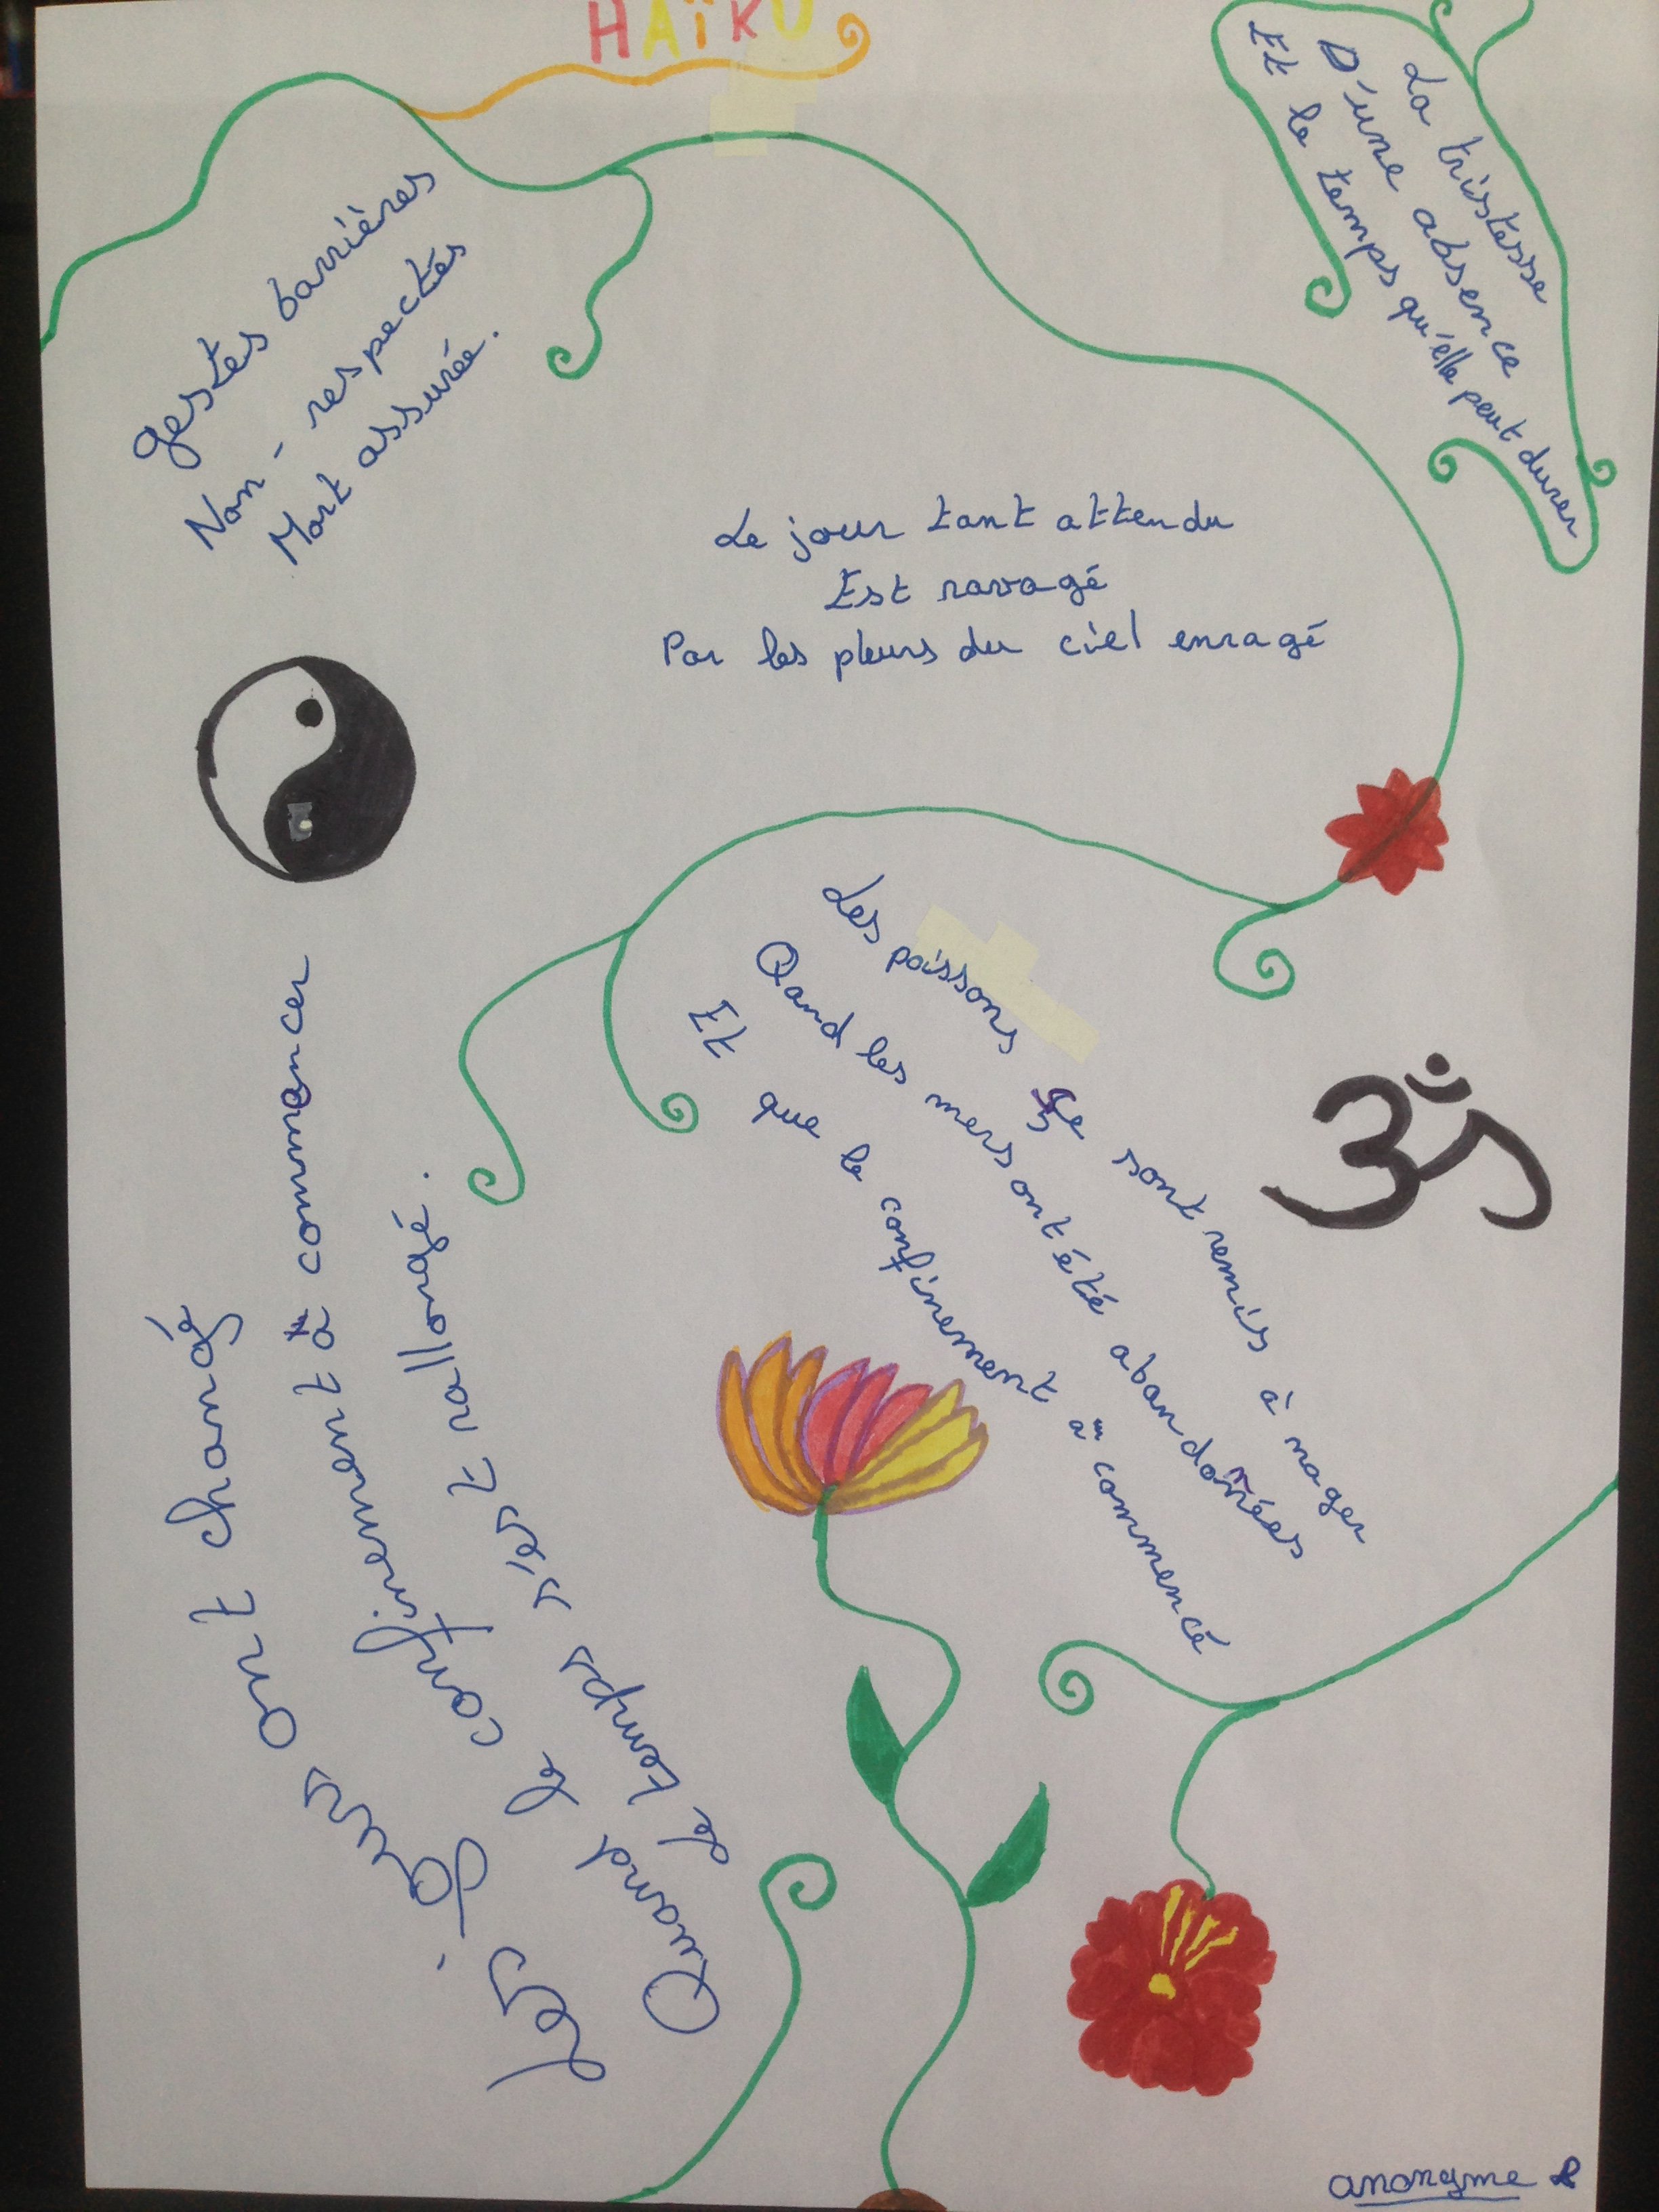 HAÏKU
La tristesse
D'une absence
Et le temps qu'elle peut durer
Gestes barrières
Non-respectés
Mort assurée.
Le jour tant attendu
Est ravagé
Par les pleurs du ciel enragé
Les poissons se sont remis à nager
Qand les mers ont été abandonnées
Et que le confinement a commencé
Les gens ont changé
Quand le confinement a commencer
Le temps s'est rallongé.
anonyme